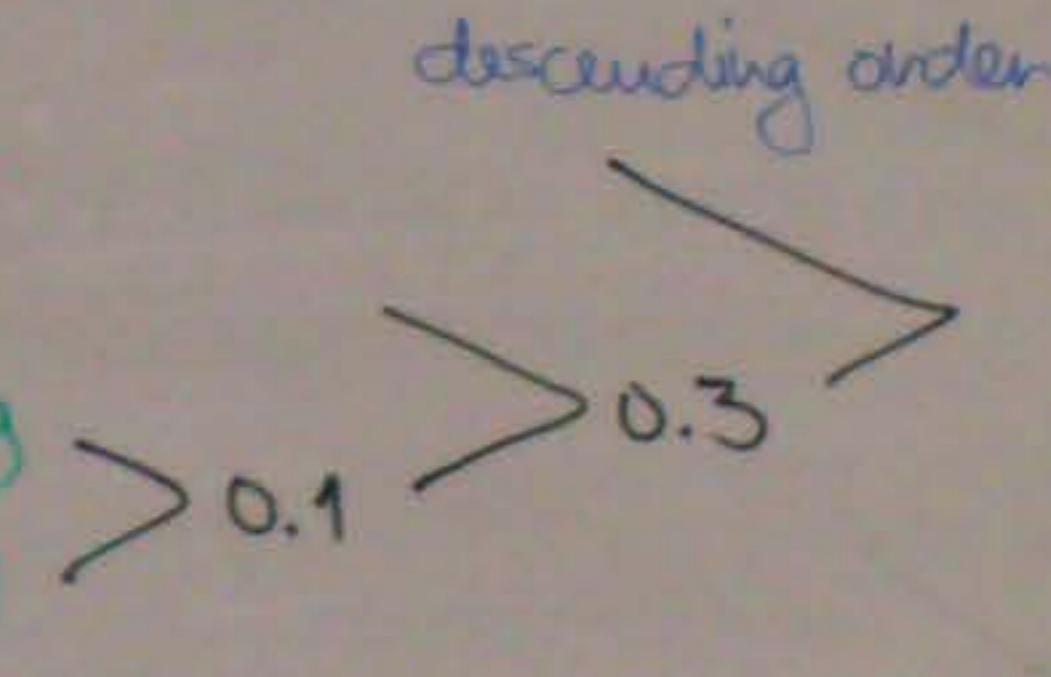 descending order
0.3
0.1